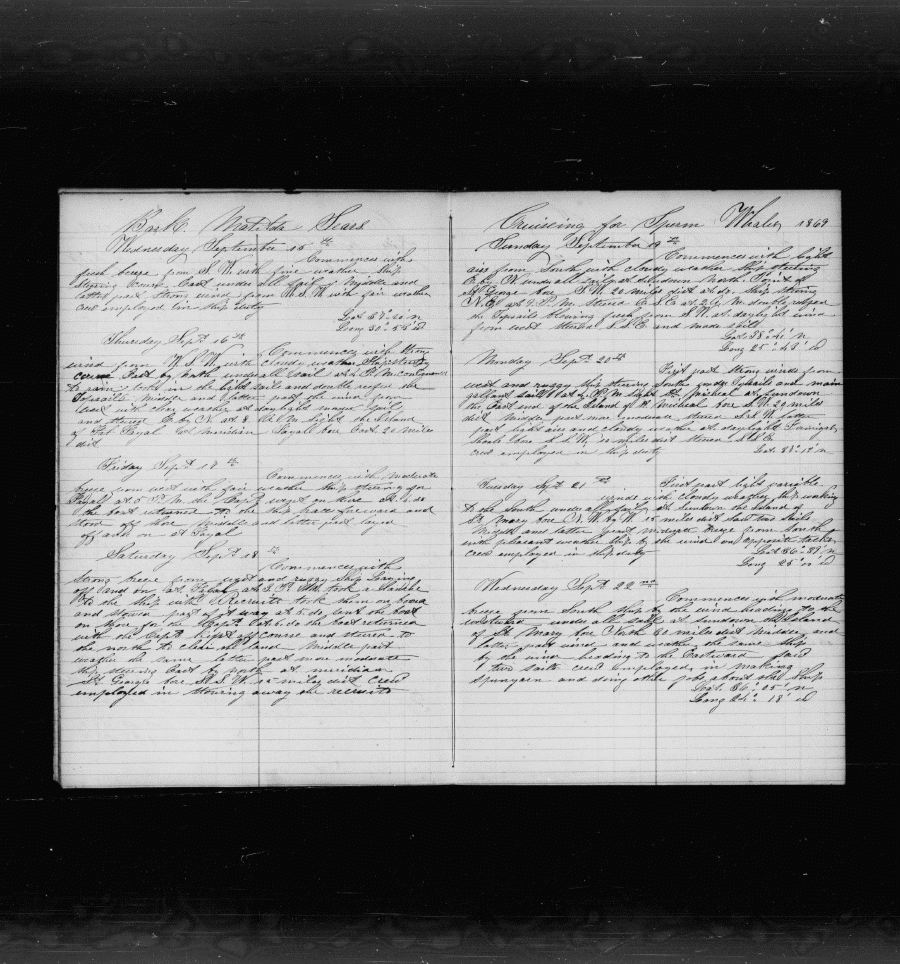 Bark Matilda Sears
Wednesday September 15th
Commences with
fresh breeze from S. W. with fine weather Ship
Stering course East under all sail Middle and
latter part strong wind from W.S.W with fair weather
crew employed in ship duty
Long 30° 55' W
Thursday Sept 16th
Commences with strong
wind from W. S. W. with cloudy weather Ship stering
course East by North under all sail at P. M. comenced
to rain took in the light sails and double reefed the
Topsails Middle and latter part the wind from
West with clear weather at daylight made sail
and stered E. by N. at 8 A. M. light the Island
of Fayal at meridian Fayal bore East 20 miles
dist
Friday Sept 17th
Commences with moderate
breeze from west with fair weather ship stering for
Fayal at 5 P. M. the Capt went on shore at
the boat returned to the ship
stood off shore Middle and latter part layed
off and on at Fayal
Saturday Sept 18th
Commences with
strong breeze from and ruggy Ship Laying
off and on at Fayal at 3 P. M. took a
to the ship with Recruits took them on board
and stowed part of away at 5 do, sent the boat
on shore for the Capt at 6 do the boat returned
with the Capt kept off course and stered to
the north to clear the land Middle part
weather the same latter part more moderate
ship stering East by North at meridian
St Georges bore S. S. W. 15 miles dist Crew
employed in stowing away the recruits
Cruiseing for Sperm Whales 1869
Sunday September 19th
Commences with light
airs from South with cloudy weather Ship stering
E. by N. under all sail at sundown North Point
of St George bore S. W. 20 miles dist at do. Ship stering
N.E. at 9 P. M. Stered E. S. E. at 2 A. M. double reefed
the Topsails blowing fresh from S. W. at daylight wind
from west stered S. S. E. and made sail
Lat 38° 41' N
Long 25° 48' W
Monday Sept 20th
First part strong winds from
west and ruggy ship stering South under Topsails and main
gallant sail at P. M. light St. Micheal at sundown
the East end of the Island of St Micheal bore S. W. 20 miles
dist Middle part more moderate stered S. W. latter
part light airs and cloudy weather at daylight
Rocks bore S. S. W. miles dist stered S. S. E.
crew employed in ship duty
Tuesday Sept 21st
First part light variable
winds with cloudy weather, ship working
to the South under all sail, at sundown the Island of
St. Mary bore N. W. by W. 15 miles dist
Middle and latter part moderate breeze from South
with pleasant weather ship by the wind on opposite tacks
crew employed in ship duty
Lat 36° 38' N
Long 25° W
Wednesday Sept 22nd
Commences with moderate
breeze from South Ship by the wind heading to the
westward under all sail at sundown the Island
of St. Mary bore North 60 miles dist Middle, and
latter part wind and weather the same Ship
by the wind heading to the Eastward
two sails crew employed, in making
spunyarn and doing other jobs about the Ship
Lat. 36° 05' N
Long 24° 18' W